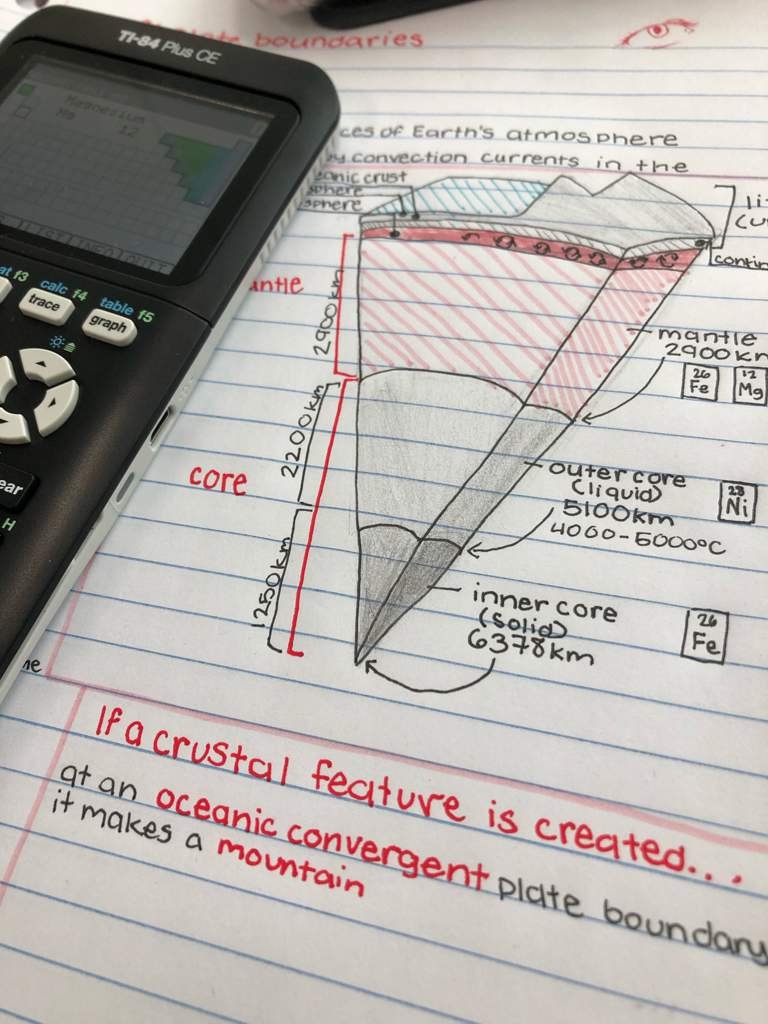 TI-84 Plus CE
boundaries
Magnesium
Mg 12
f3 calc f4 table f5
trace
graph
H
ces of Earth's atmosphere
by convection currents in the
anic crust
sphere
sphere
antle
2900km
mantle
2900km
26
Fe
12
Mg
core
2200km
outer core
(liquid)
5100km
4000-5000°C
28
Ni
1250km
inner core
(solid)
6378km
26
Fe
If a crustal feature is created...
at an oceanic convergent plate boundary
it makes a mountain